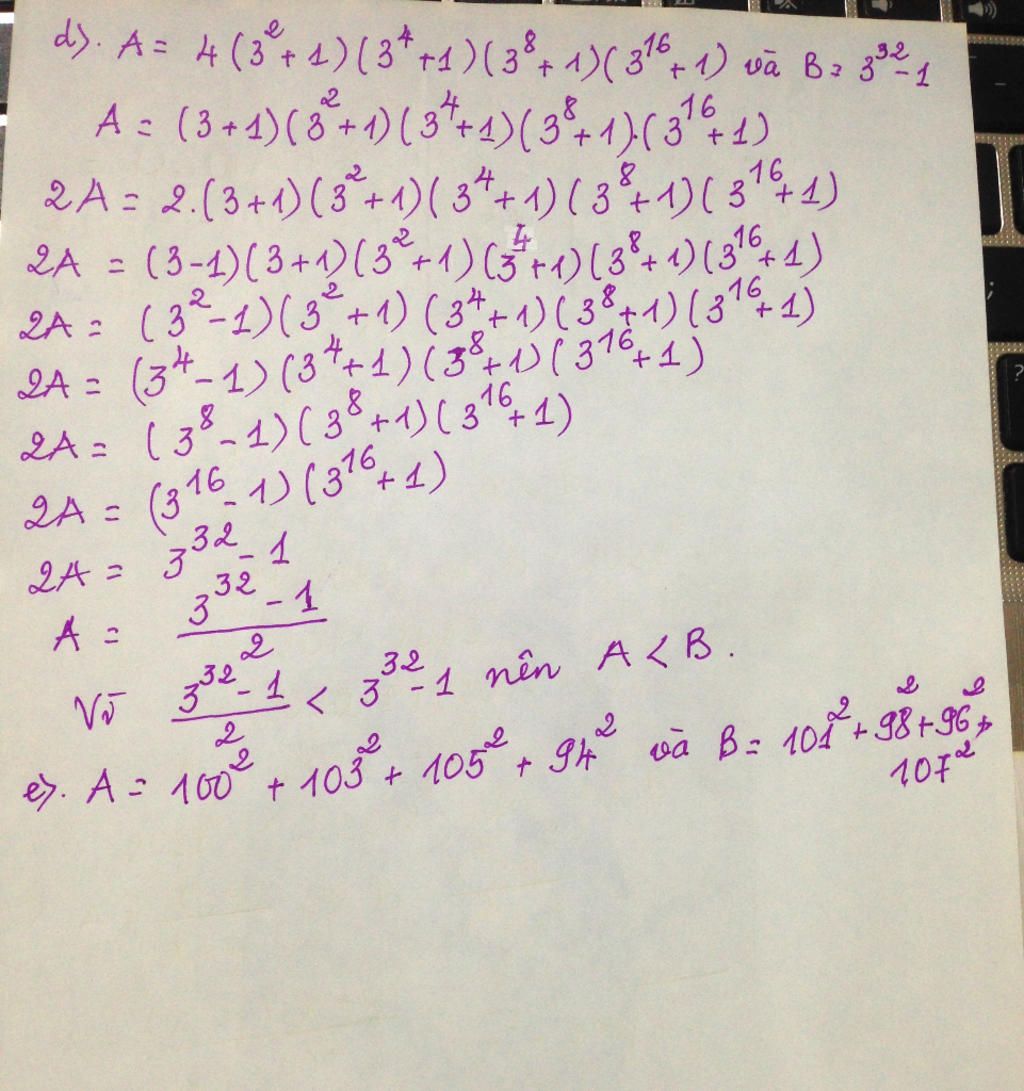 d). A = 4(3²+1)(3⁴+1)(3⁸+1)(3¹⁶+1) và B = 3³²-1
A = (3+1)(3²+1)(3⁴+1)(3⁸+1).(3¹⁶+1)
2A = 2.(3+1)(3²+1)(3⁴+1)(3⁸+1)(3¹⁶+1)
2A = (3-1)(3+1)(3²+1)(3⁴+1)(3⁸+1)(3¹⁶+1)
2A = (3²-1)(3²+1)(3⁴+1)(3⁸+1)(3¹⁶+1)
2A = (3⁴-1)(3⁴+1)(3⁸+1)(3¹⁶+1)
2A = (3⁸-1)(3⁸+1)(3¹⁶+1)
2A = (3¹⁶-1)(3¹⁶+1)
2A = 3³²-1
A = (3³²-1)/2
Vì (3³²-1)/2 < 3³²-1 nên A < B.
e). A = 100² + 103² + 105² + 94² và B = 101² + 98² + 96² +
107²